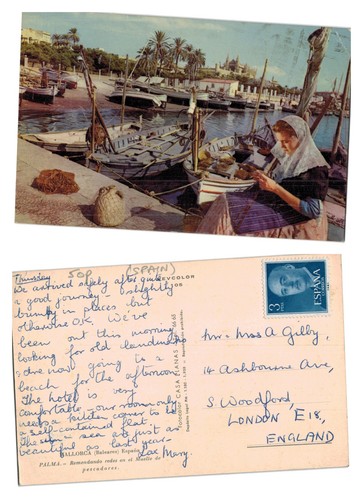 Thursday
50p
(SPAIN)
We arrived safely after quite
a good journey - slightly
bumpy in places but
otherwise O.K. We've
been out this morning
looking for old landmarks
& are now going to a
beach for the afternoon.
The hotel is very
comfortable, our room only
needs a kitchen corner to be
a self-contained flat.
The sun & sea are just as
beautiful as last year-
Love Mary.
MALLORCA (Baleares) España
PALMA. - Remendando redes en el Muelle de
pescadores.
CASA PLANAS
3
PTAS
ESPAÑA
Mr & Mrs A Gilby,
14 Ashbourne Ave,
S. Woodford,
LONDON E18,
ENGLAND